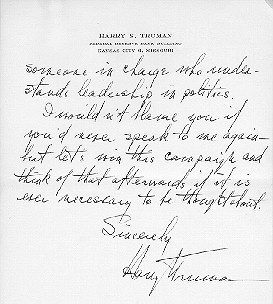 HARRY S. TRUMAN
FEDERAL RESERVE BANK BUILDING
KANSAS CITY 6, MISSOURI
someone in charge who under-
stands leadership in politics.
I wouldn't blame you if
you'd never speak to me again-
but let's win this campaign and
think of that afterwards if it is
ever necessary to be thought about.
Sincerely
Harry Truman